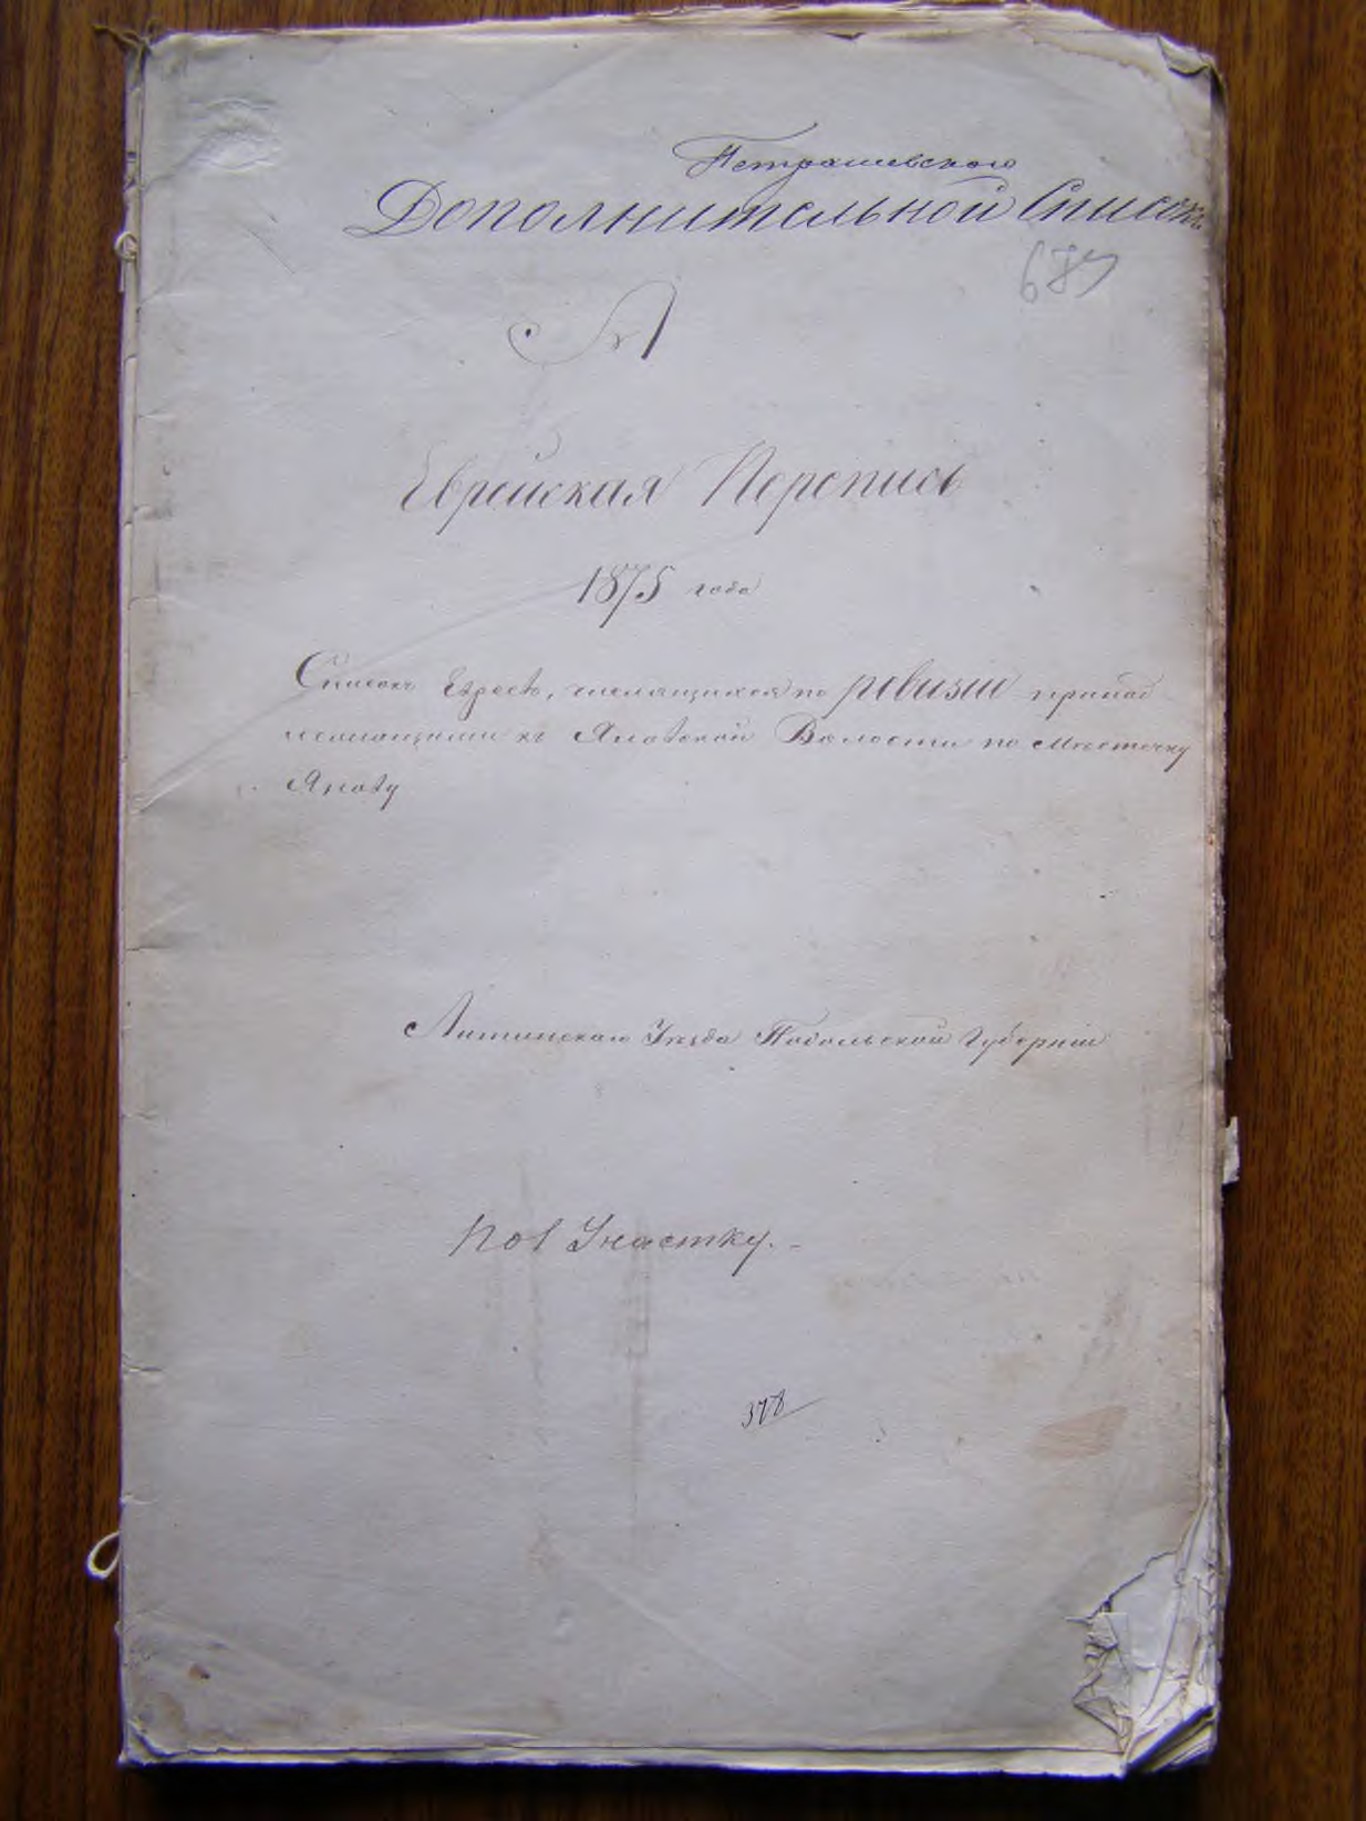 Петрашевского
Дополнительной Списокъ
687
№ 1
Еврейская Перепись
1875 года
Списокъ Евреевъ, числящихся по ревизіи принад
лежащими къ Яновской Волости по Мѣстечку
Янову
Литинскаго Уѣзда Подольской Губерніи
По 1 Участку.
378